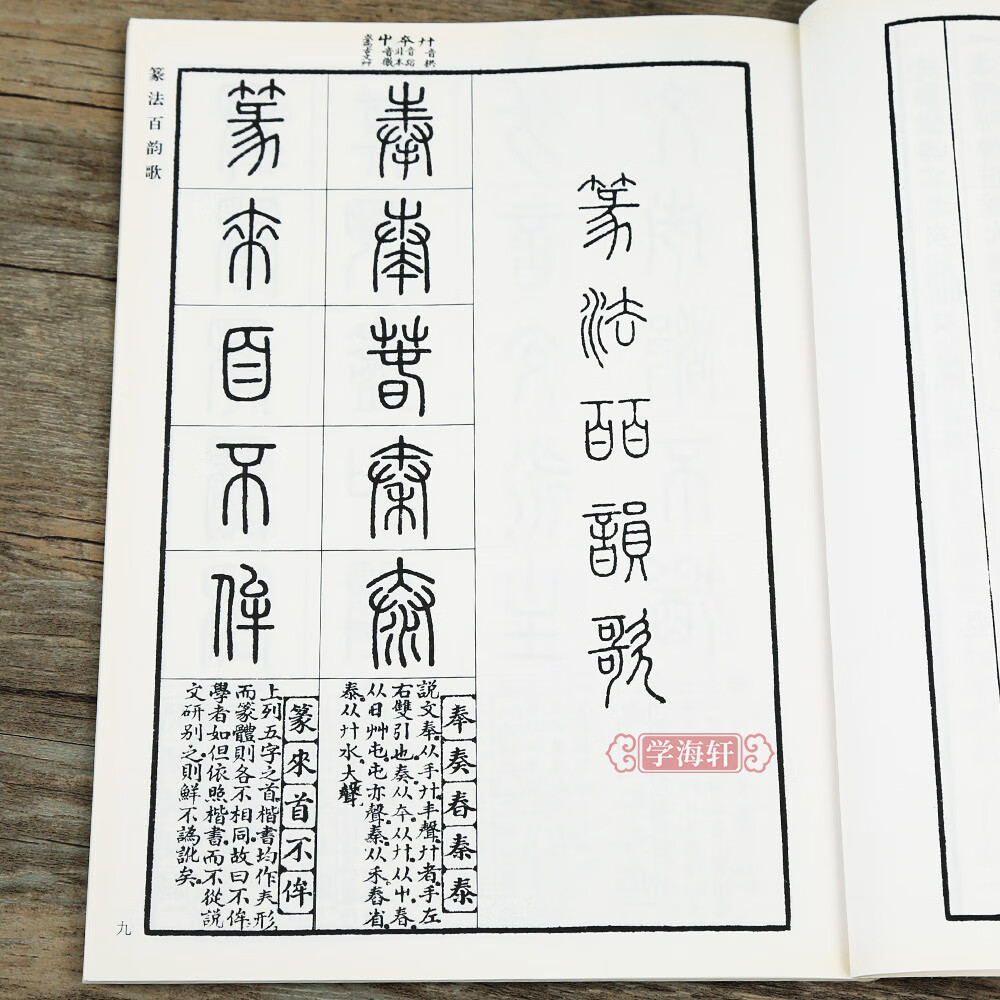 篆法百韻歌
学海轩
廾音拱
屮音徹
奉奏春秦泰
奉奏春秦泰
說文奉从手廾丰聲廾者手左
右雙引也奏从夲从廾从屮春
从日艸屯屯亦聲秦从禾舂省
泰从廾水大聲
篆來首不侔
篆來首不侔
上列五字之首楷書均作𡗗形
而篆體則各不相同故曰不侔
學者如但依照楷書而不從說
文研別之則鮮不譌訛矣
篆法百韵歌
九